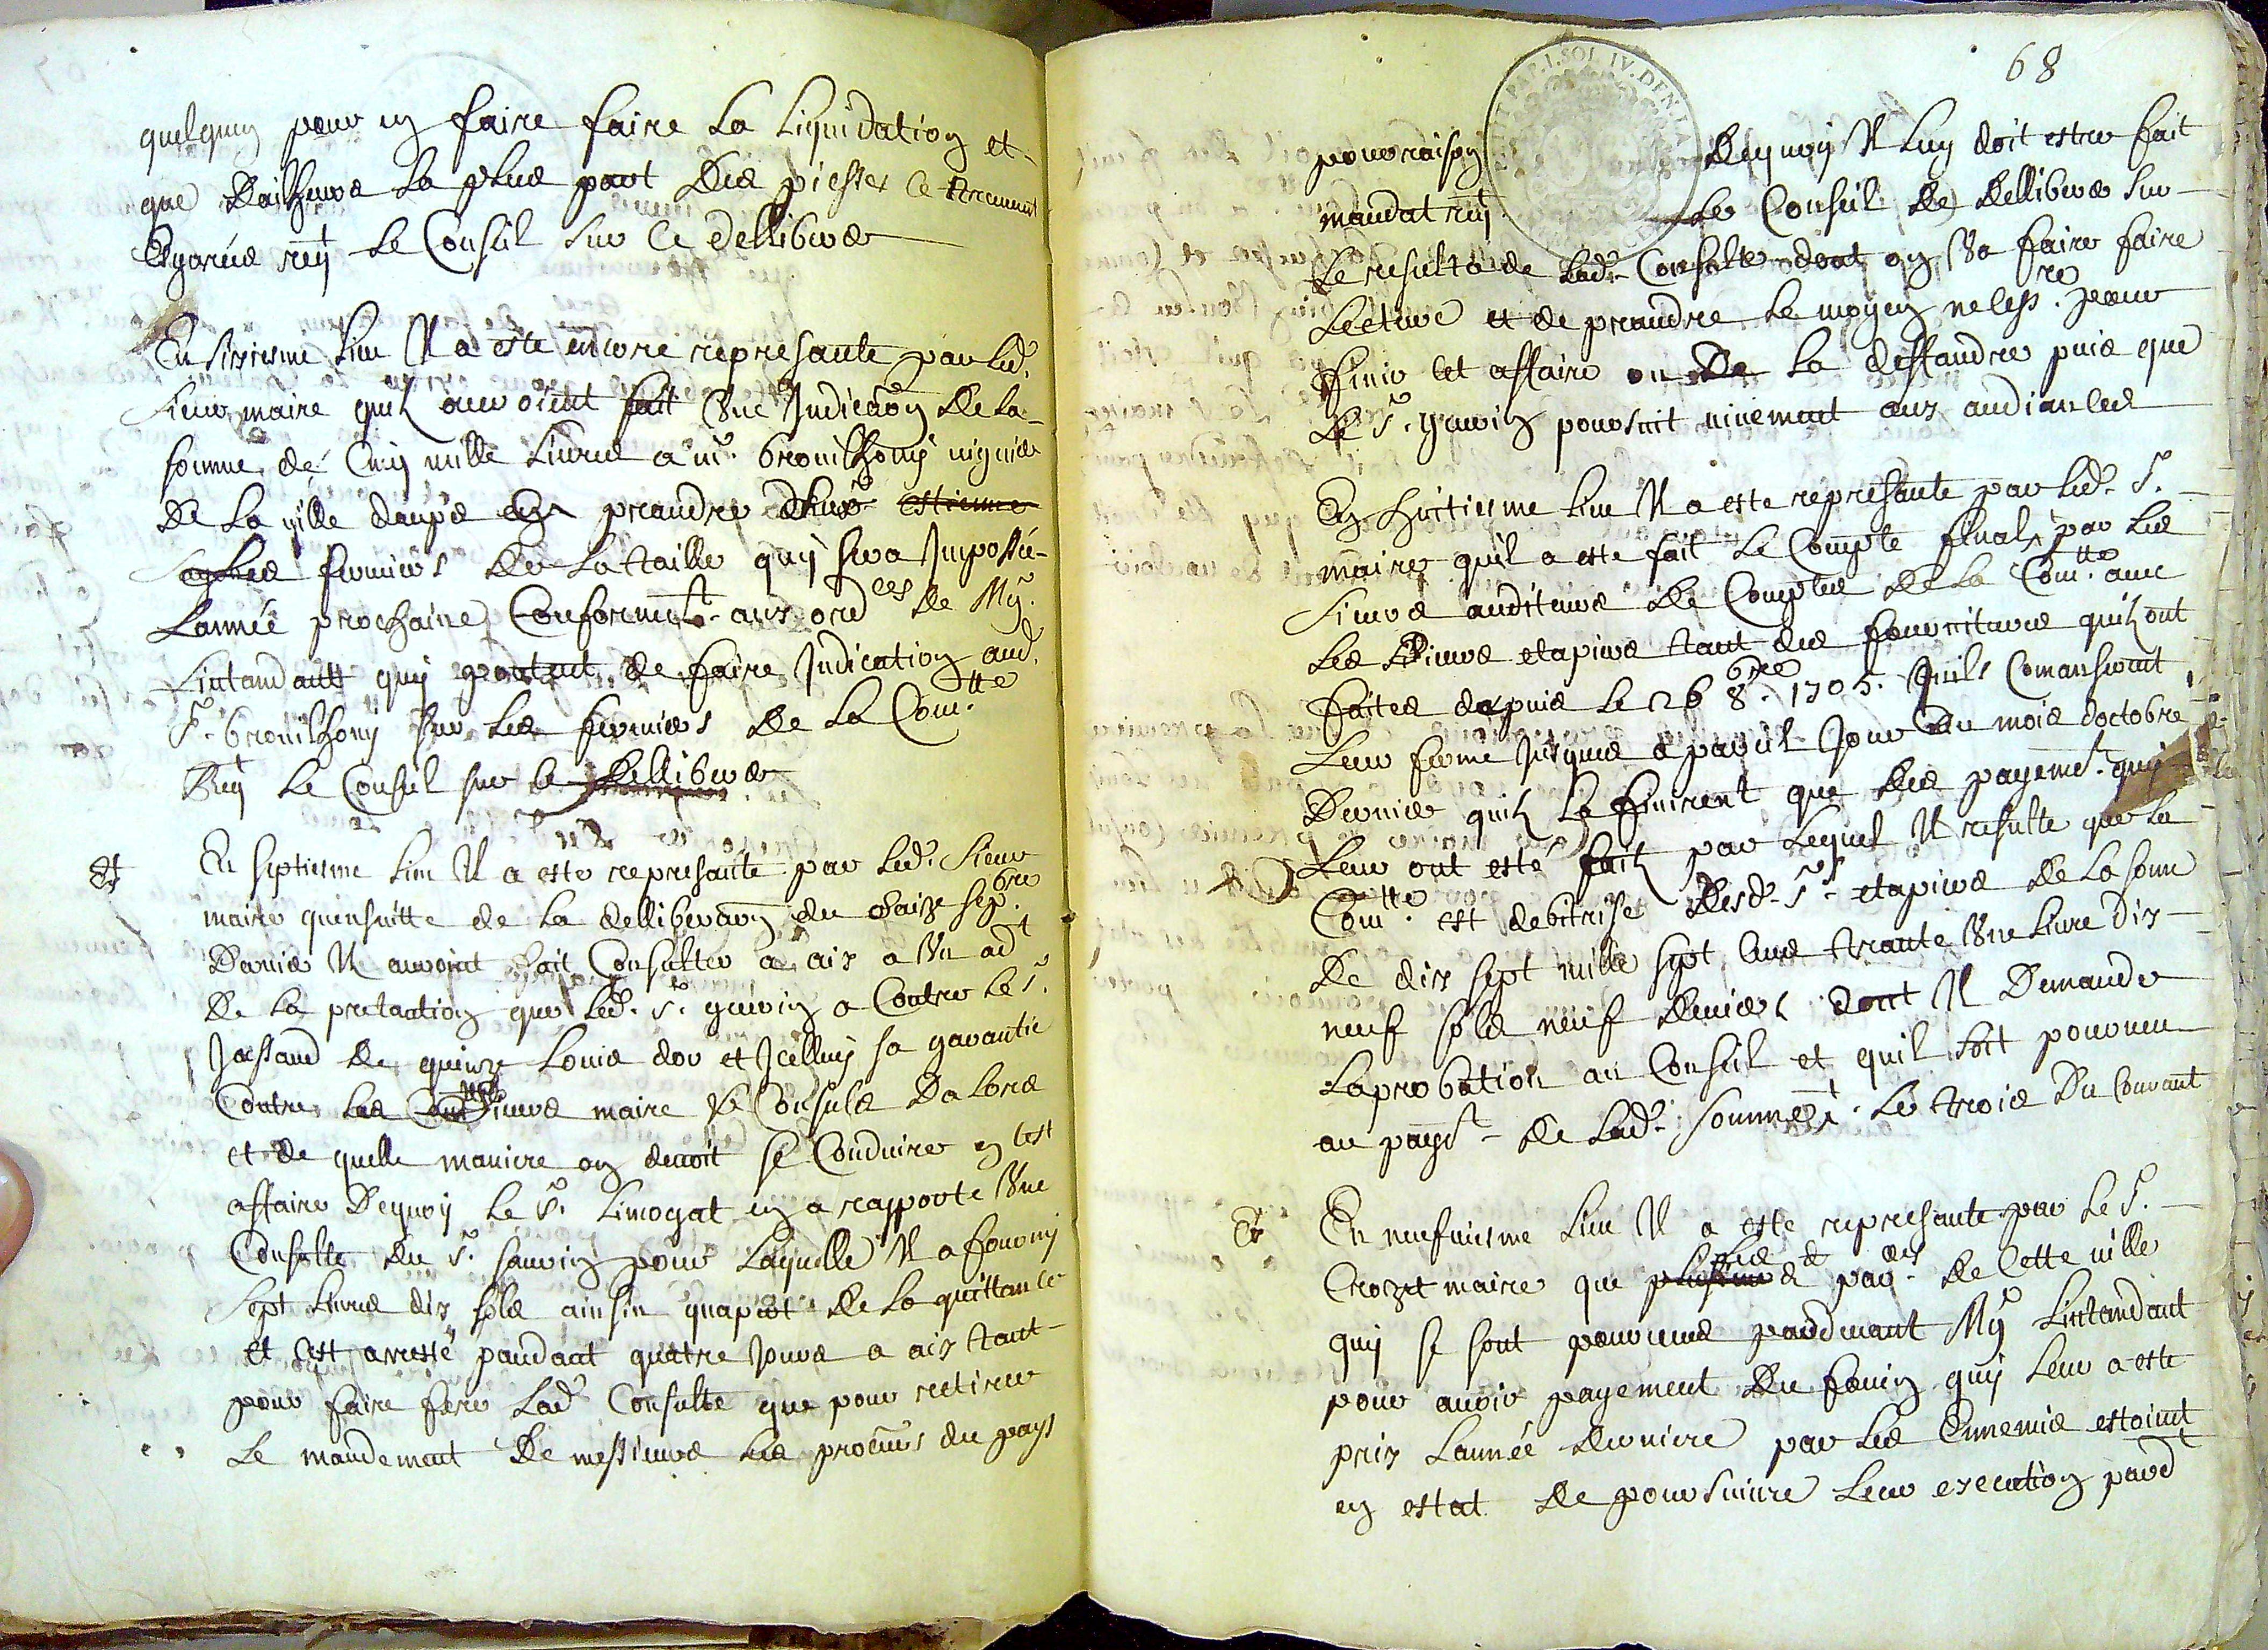 quelquun pour en faire faire la liquidation et
que dailheurs la plus part des piesses ce treuvent
esgarées reqt le conseil sur ce delliberer
En sixiesme lieu Il a este encore represanté par led.
sieur maire quils auroient fait une Indicaon de la
somme de cinq mille livres a mr. brouilhony viguier
de la ville daups en prandre
fermiers de la taille quy sera Impossée
Lannée prochaine conformemt. aux ordces de Mgr.
Lintandantt quy portent de faire Indication aud.
sr. brouilhony sur les fermiers de la Comtte
Reqt le conseil sur ce delliberer
Et
En septiesme lieu Il a este represanté par led. sieur
maire quensuitte de la delliberaon du saize sepbre
dernier Il auroint fait consulter a aix a un adt
de la pretantion que led. sr. gueirin a contre le sr.
Jassaud de quinze louis dor et Icelluy sa garantie
contre les sieurs maire & consuls da lors
et de quelle maniere on devoit se conduire en cest
affaire dequoy le sr. limogat en a rapporté une
consulte du sr. sauvin pour laquelle Il a fourny
sept livres dix sols ainsin quapert de la quittance
et cest aresté pandant quatre jours a aix tant
pour faire fere lade consulte que pour rettirer
le mandement de messieurs les procurs du pays
68
pour raison dequoy Il luy doit estre fait
mandat reqt. le conseil de delliberer sur
le resulta de lade. consulte dont on va faire faire
lecture et de prandre le moyen necessre. pour
finir cet affaire ou de la deffandre puis que
le sr. gueirin poursuit vivement aux audiances
En huitiesme lieu Il a este represanté par led. sr.
maire quil a este fait le compte final par les
sieurs auditeurs de comptes de la Comtte. avec
les sieurs etapiers tant des fournitures quils ont
faites depuis le 26 8bre 1705. quils comanserent
leur ferme jusques a pareil jour du mois doctobre
dernier quils la finirent que des payemts. quy
leur ont esté fait par lequel Il resulte que la
Comtte. est debitrise desd. srs. etapiers de la some
de dix sept mille sept cens trante une livre dix
neuf sols neuf deniers dont Il demande
laprobation au conseil et quil soit pourveu
au payemt de lade. somme le trois du courant
Et
En neufviesme lieu Il a este represanté par le sr.
Crozet maire que les parers de cette ville
quy se sont pourveus pardevant Mgr Lintandant
pour avoir payement du fouin quy leur a este
pris lannée derniere par les Ennemis estoint
en estat de poursuivre leur execution pard